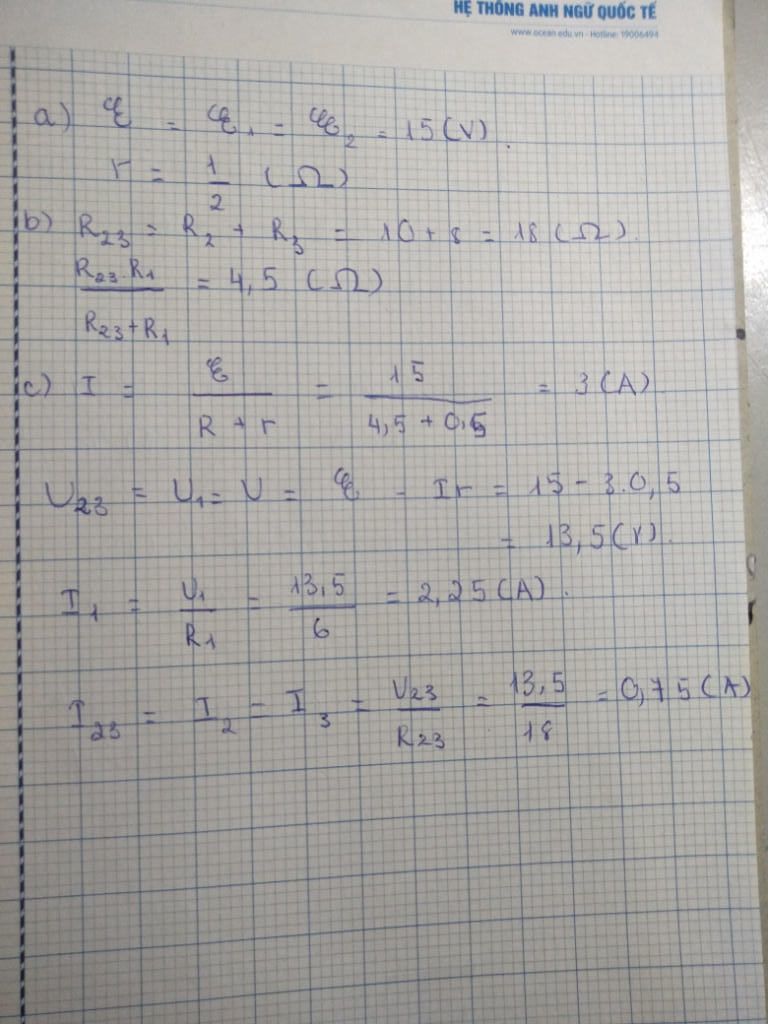 HỆ THỐNG ANH NGỮ QUỐC TẾ
www.ocean.edu.vn - Hotline: 19006494
a) ℰ = ℰ₁ = ℰ₂ = 15 (V).
r = 1/2 (Ω)
b) R₂₃ = R₂ + R₃ = 10 + 8 = 18 (Ω).
R₂₃.R₁ / R₂₃+R₁ = 4,5 (Ω)
c) I = ℰ / R + r = 15 / 4,5 + 0,5 = 3 (A)
U₂₃ = U₁ = U = ℰ - Ir = 15 - 3.0,5
= 13,5 (V).
I₁ = U₁ / R₁ = 13,5 / 6 = 2,25 (A).
I₂₃ = I₂ = I₃ = U₂₃ / R₂₃ = 13,5 / 18 = 0,75 (A)